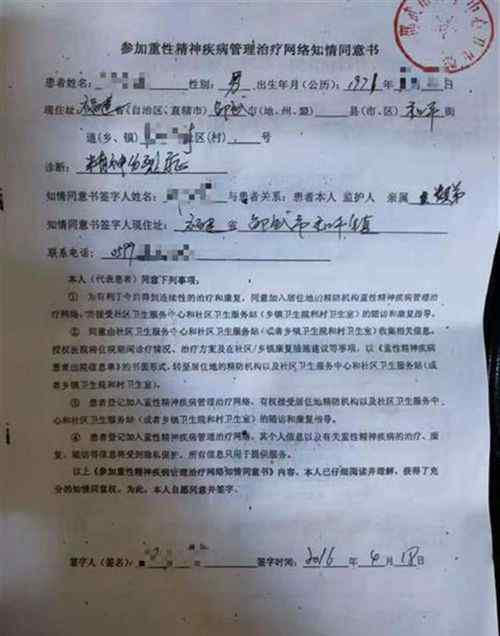 参加重性精神疾病管理治疗网络知情同意书
患者姓名: 性别: 男 出生年月(公历): 1971 年
现住址 福建 省(自治区、直辖市) 邵武 市(地、州、盟) 县(市、区) 和平 街
道(乡、镇) 社区(村) 号
诊断: 精神分裂症
知情同意书签字人姓名: 与患者关系: 患者本人 监护人 亲属
知情同意书签字人现住址: 福建 省 邵武市和平镇
联系电话: 0599
本人(代表患者)同意下列事项:
① 为有利于今后得到连续性的治疗和康复,同意加入居住地的精防机构重性精神疾病管理治
疗网络,并接受社区卫生服务中心和社区卫生服务站(乡镇卫生院和村卫生室)的随访和康复指导。
② 同意由社区卫生服务中心和社区卫生服务站(或者乡镇卫生院和村卫生室)收集相关信息,
授权医院将住院期间诊疗情况、治疗方案及在社区/乡镇康复措施建议等事项,以《重性精神疾病
患者出院信息单》的书面形式,转至居住地的精防机构以及社区卫生服务中心和社区卫生服务站(或
者乡镇卫生院和村卫生室)。
③ 患者登记加入重性精神疾病管理治疗网络,有权接受居住地精防机构以及社区卫生服务中
心和社区卫生服务站(或者乡镇卫生院和村卫生室)的随访和康复指导。
④ 患者登记加入重性精神疾病管理治疗网络,其个人信息以及有关重性精神疾病的治疗、康
复、随访等信息将受到隐私保护。所有信息只用于提供服务。
以上《参加重性精神疾病管理治疗网络知情同意书》内容,本人已仔细阅读并理解,获得了充
分的知情同意权,为此,本人自愿同意并签字。
签字人(签名): 签字时间: 2016 年 4 月 18 日